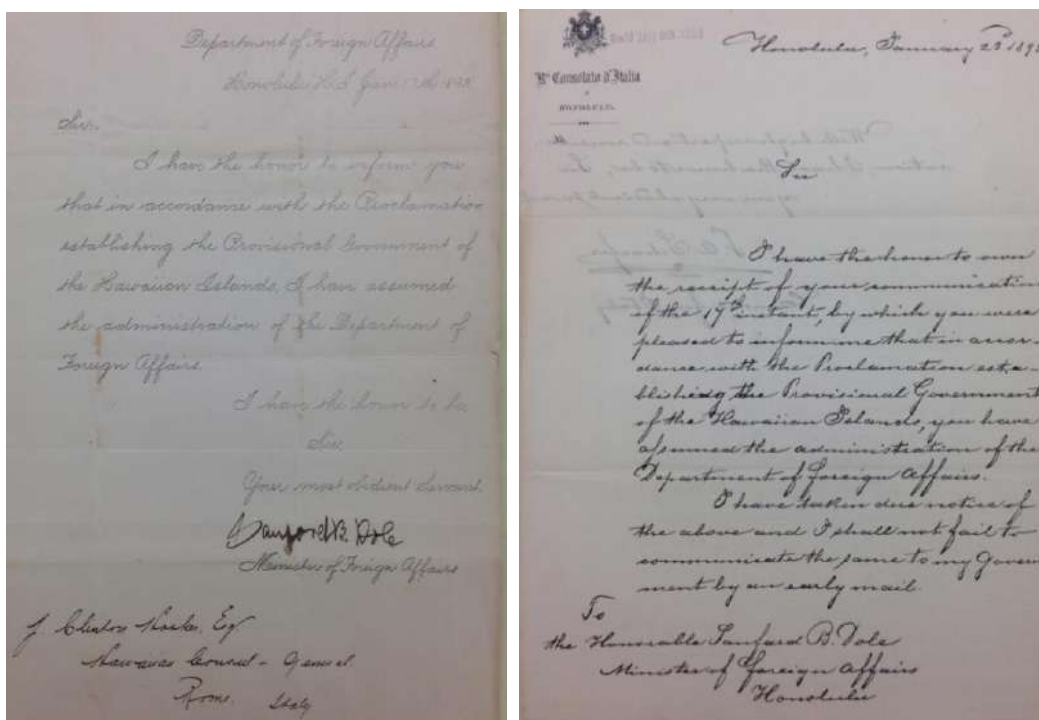 Department of Foreign Affairs
Honolulu H.I. Jan.
Sir.
I have the honor to inform you
that in accordance with the Proclamation
establishing the Provisional Government of
the Hawaiian Islands, I have assumed
the administration of the Department of
Foreign Affairs.
I have the honor to be
Sir,
Your most obedient Servant
Sanford B. Dole
Minister of Foreign Affairs
J. Clinton Esq
Hawaiian Consul-General
Rome. Italy
Honolulu, January
Rº Consolato d'Italia
HONOLULU.
Sir
I have the honor to own
the receipt of your communication
of the 17th instant, by which you were
pleased to inform me that in accor-
dance with the Proclamation esta-
blishing the Provisional Government
of the Hawaiian Islands, you have
assumed the administration of the
Department of foreign Affairs.
I have taken due notice of
the above and I shall not fail to
communicate the same to my Govern
ment by an early mail.
To
the Honorable Sanford B. Dole
Minister of foreign Affairs
Honolulu